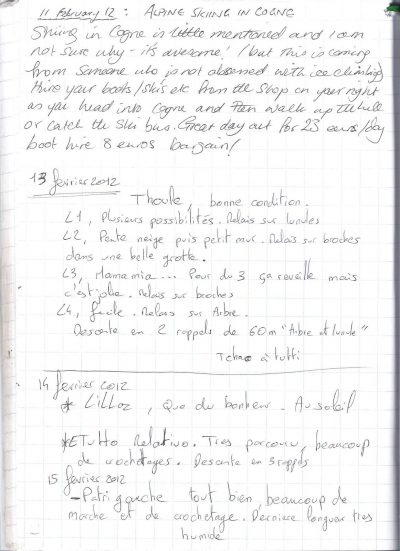 11 February 12 : ALPINE SKIING IN COGNE
Skiing in Cogne is little mentioned and I am
not sure why - it's awesome! (but this is coming
from someone who is not obsessed with ice climbing)
Hire your boots/skis etc from the shop on your right
as you head into Cogne and then walk up the hill
or catch the ski bus. Great day out for 23 euros/day
boot hire 8 euros bargain!
13 février 2012
Thoule, bonne condition.
L1, Plusieurs possibilités. Relais sur lunules
L2, Pente neige puis petit mur. Relais sur broches
dans une belle grotte.
L3, Mamamia... Pour du 3 ça reveille mais
c'est jolie. Relais sur broches
L4, facile. Relais sur Arbre.
Descente en 2 rappels de 60m "Arbre et lunule"
Tchao a tutti
14 fevrier 2012
* Lillaz, Que du bonheur. Au soleil
* Tutto Relativo. Tres parcouru, beaucoup
de crochetages. Descente en 3 rappels
15 fevrier 2012
- Patri gauche tout bien beaucoup de
marche et de crochetage. Derniere longueur tres
humide